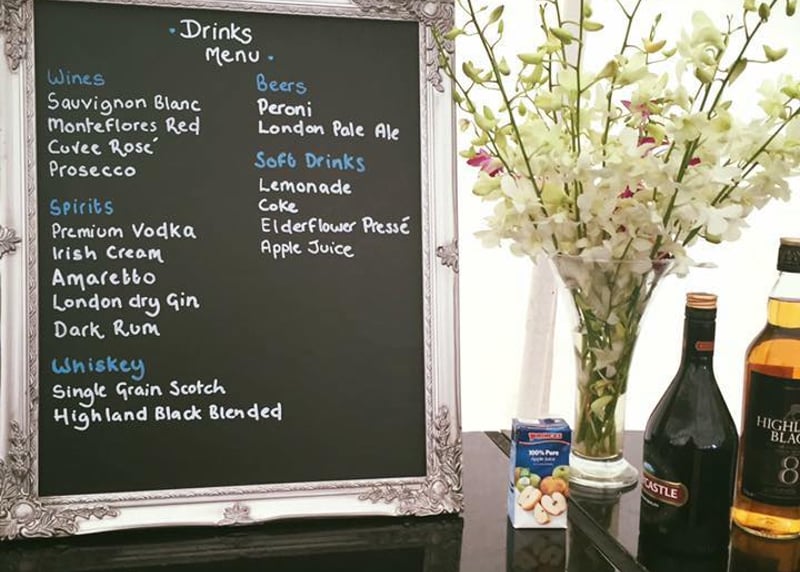 Drinks
Menu
Wines
Sauvignon Blanc
Monteflores Red
Cuvee Rosé
Prosecco
Spirits
Premium Vodka
Irish Cream
Amaretto
London dry Gin
Dark Rum
Whiskey
Single Grain Scotch
Highland Black Blended
Beers
Peroni
London Pale Ale
Soft Drinks
Lemonade
Coke
Elderflower Pressé
Apple Juice
PRINCES
100% Pure
Apple Juice
CASTLE
HIGHL
BLAC
8